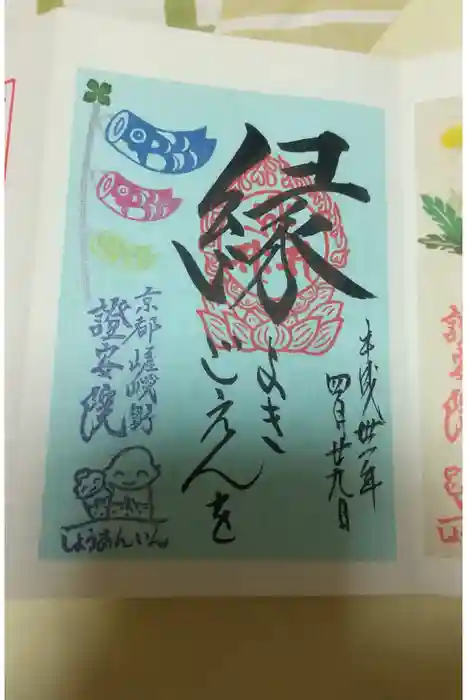 縁
よき
ごえんを
平成卅一年
四月廿九日
京都嵯峨野
證安院
しょうあんいん